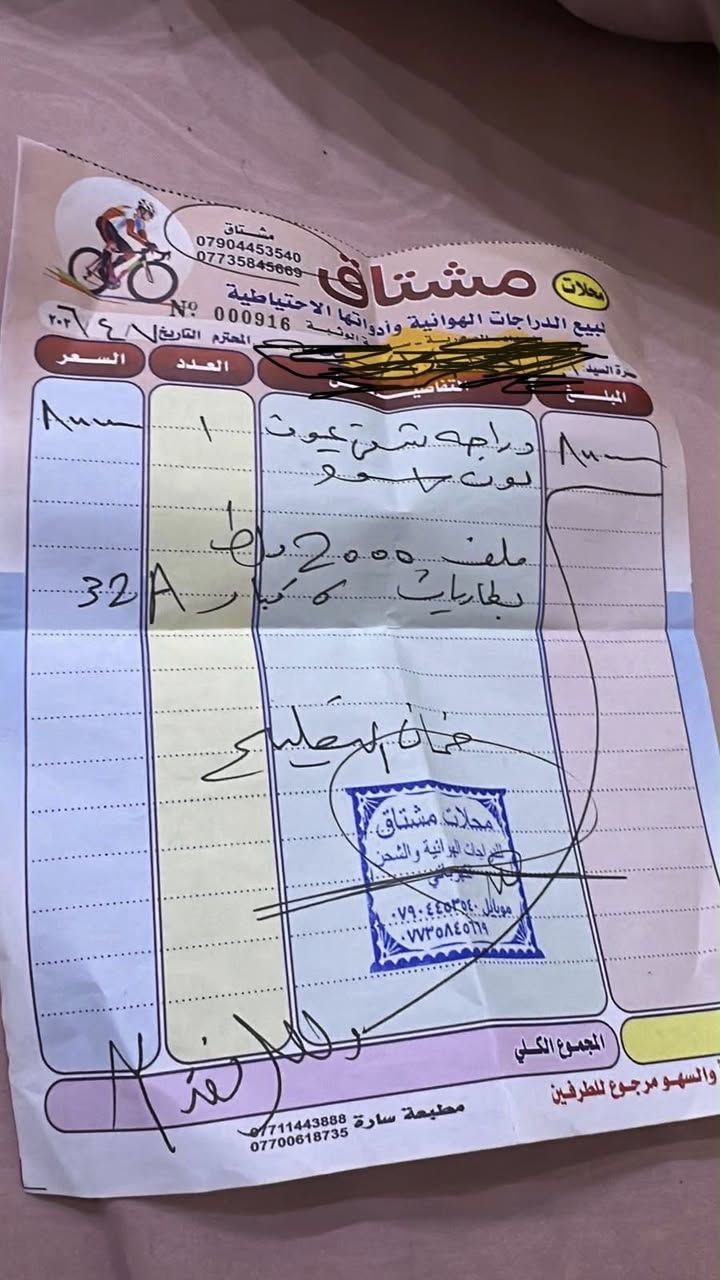 مشتاق
07904453540
07735845669
محلات
مشتاق
لبيع الدراجات الهوائية وأدواتها الاحتياطية
Nº 000916
حضرة السيد
المحترم التاريخ ٧ / ٤ / ٢٠٢٦
المبلغ
التفاصيل
العدد
السعر
دراجه شحن
١
لون اسود
ملف 2000 واط
بطاريات 5 كبار 32A
ضمان التصليح
محلات مشتاق
للدراجات الهوائية والشحن
موبايل ٠٧٩٠٤٤٥٣٥٤٠
٠٧٧٣٥٨٤٥٦٦٩
المجموع الكلي
والسهو مرجوع للطرفين
مطبعة سارة 07711443888
07700618735